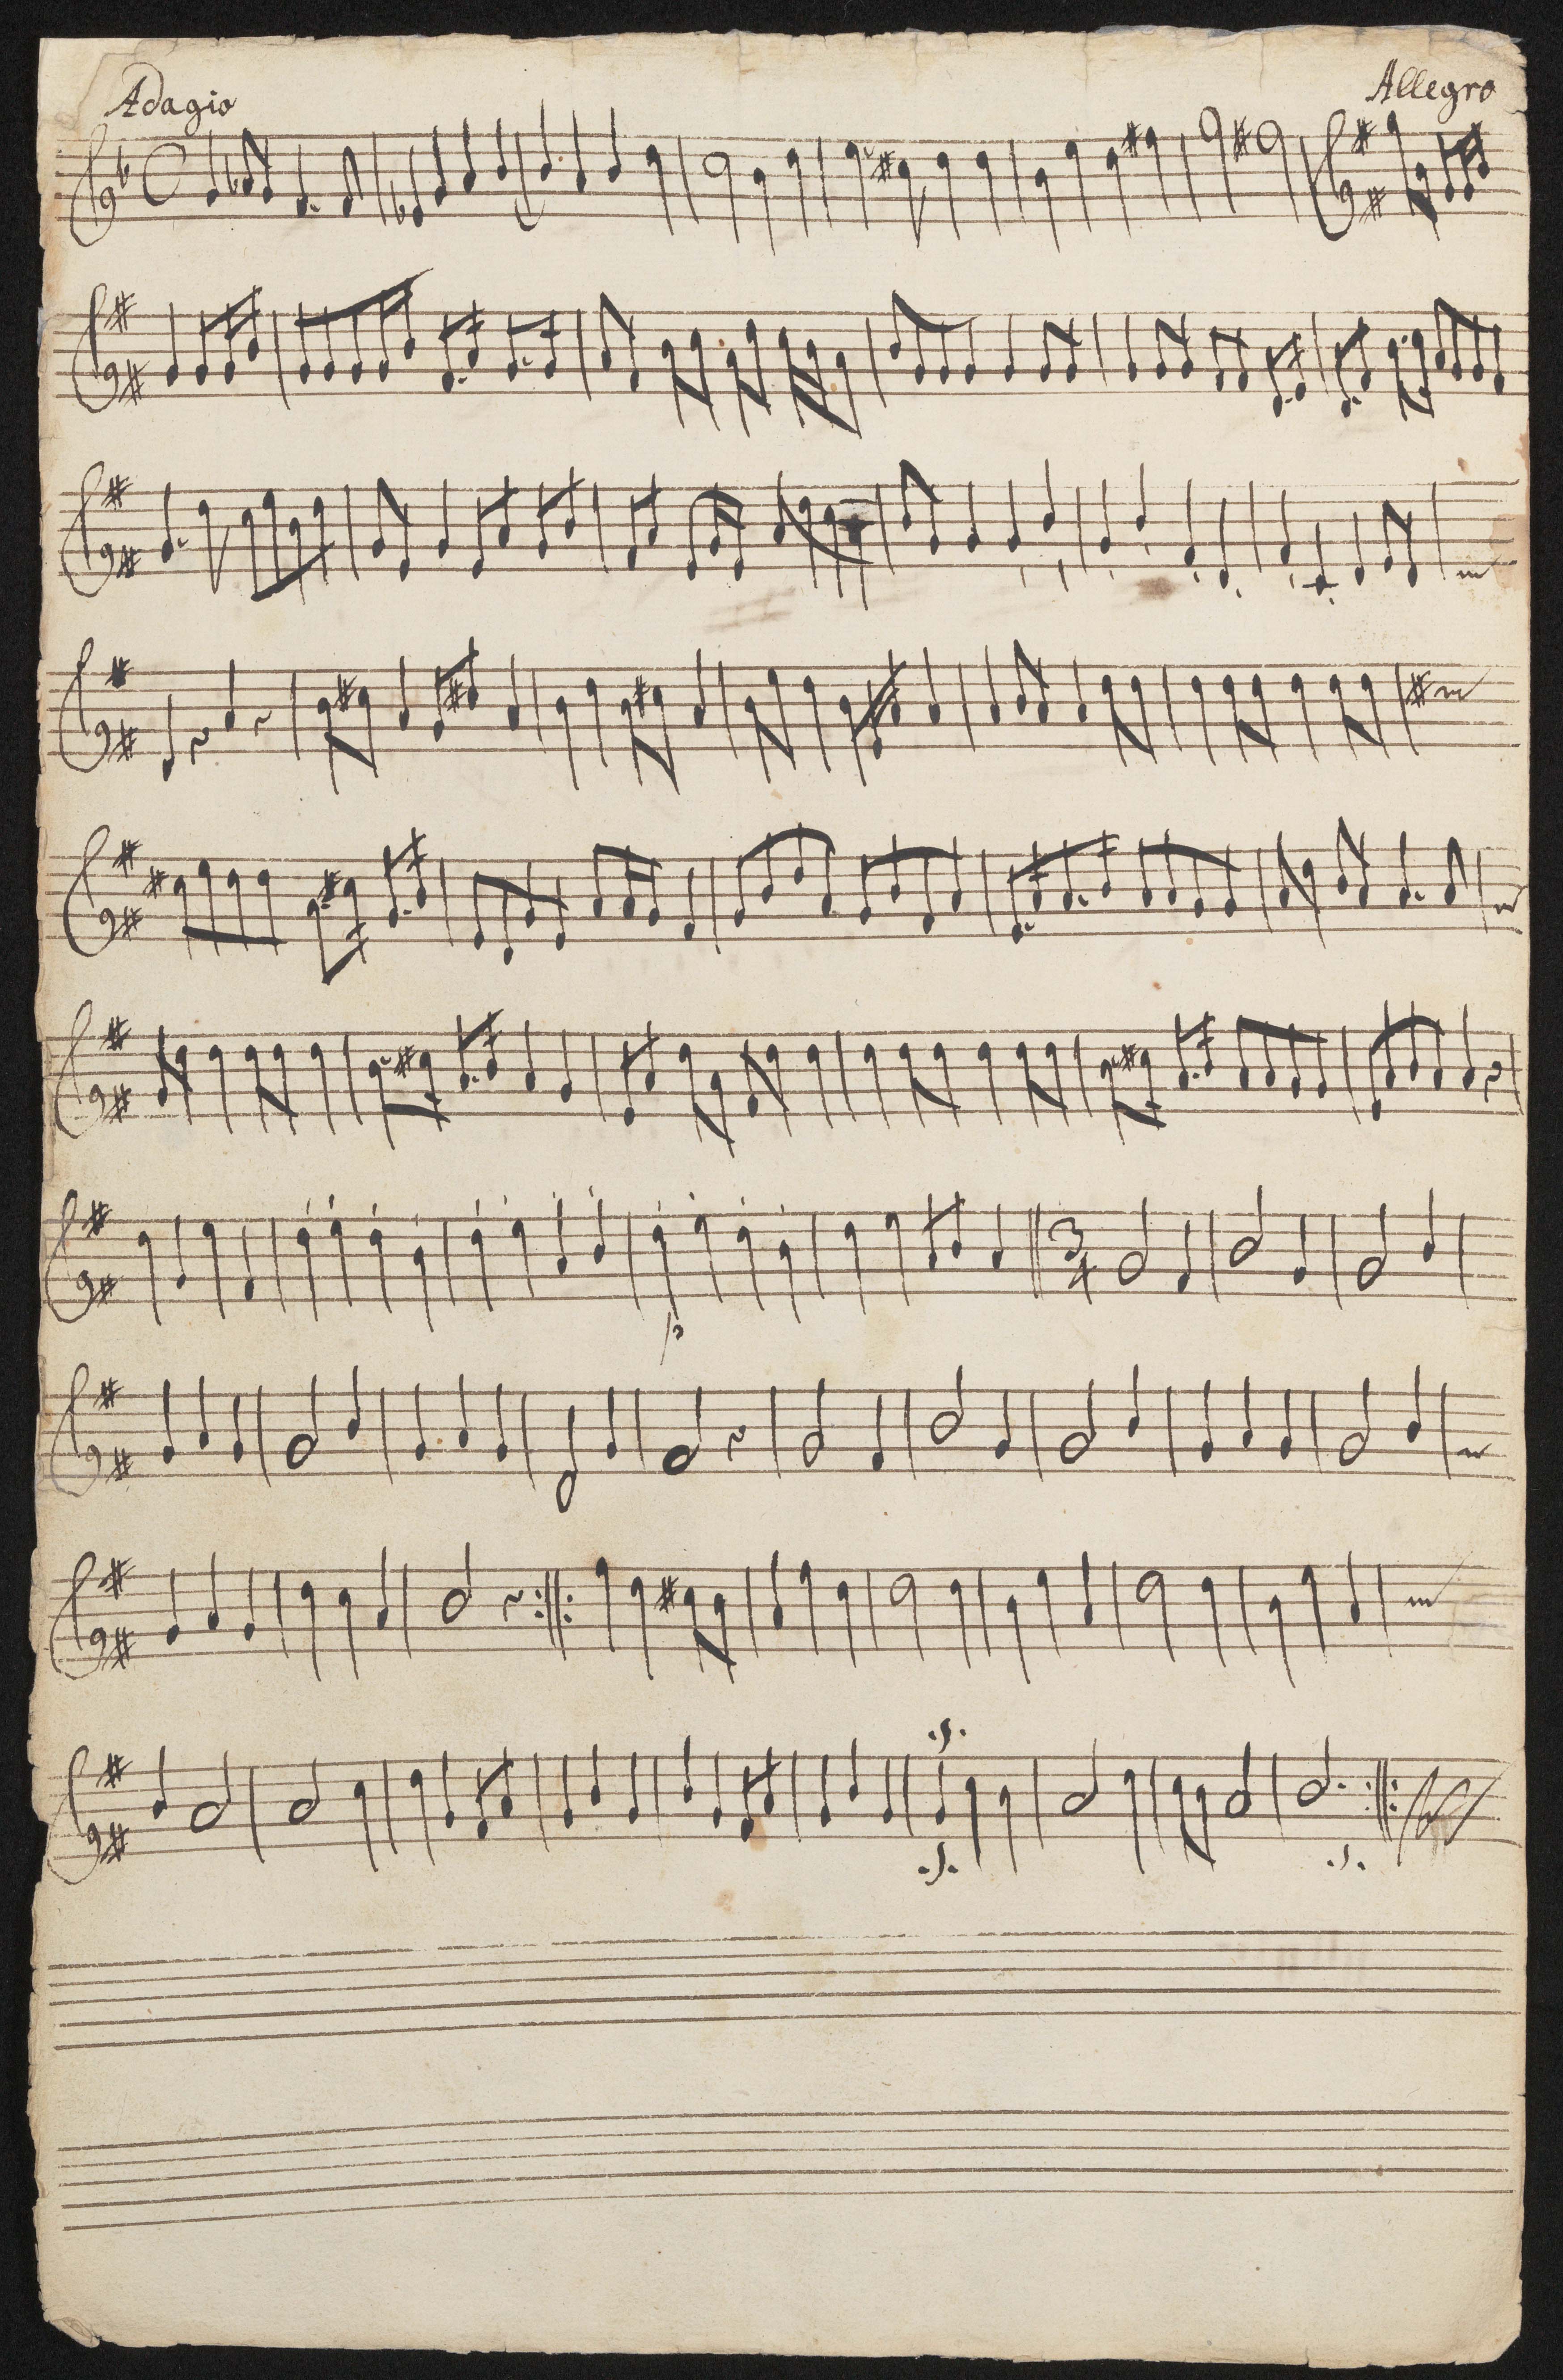 Adagio
Allegro
3
4
p